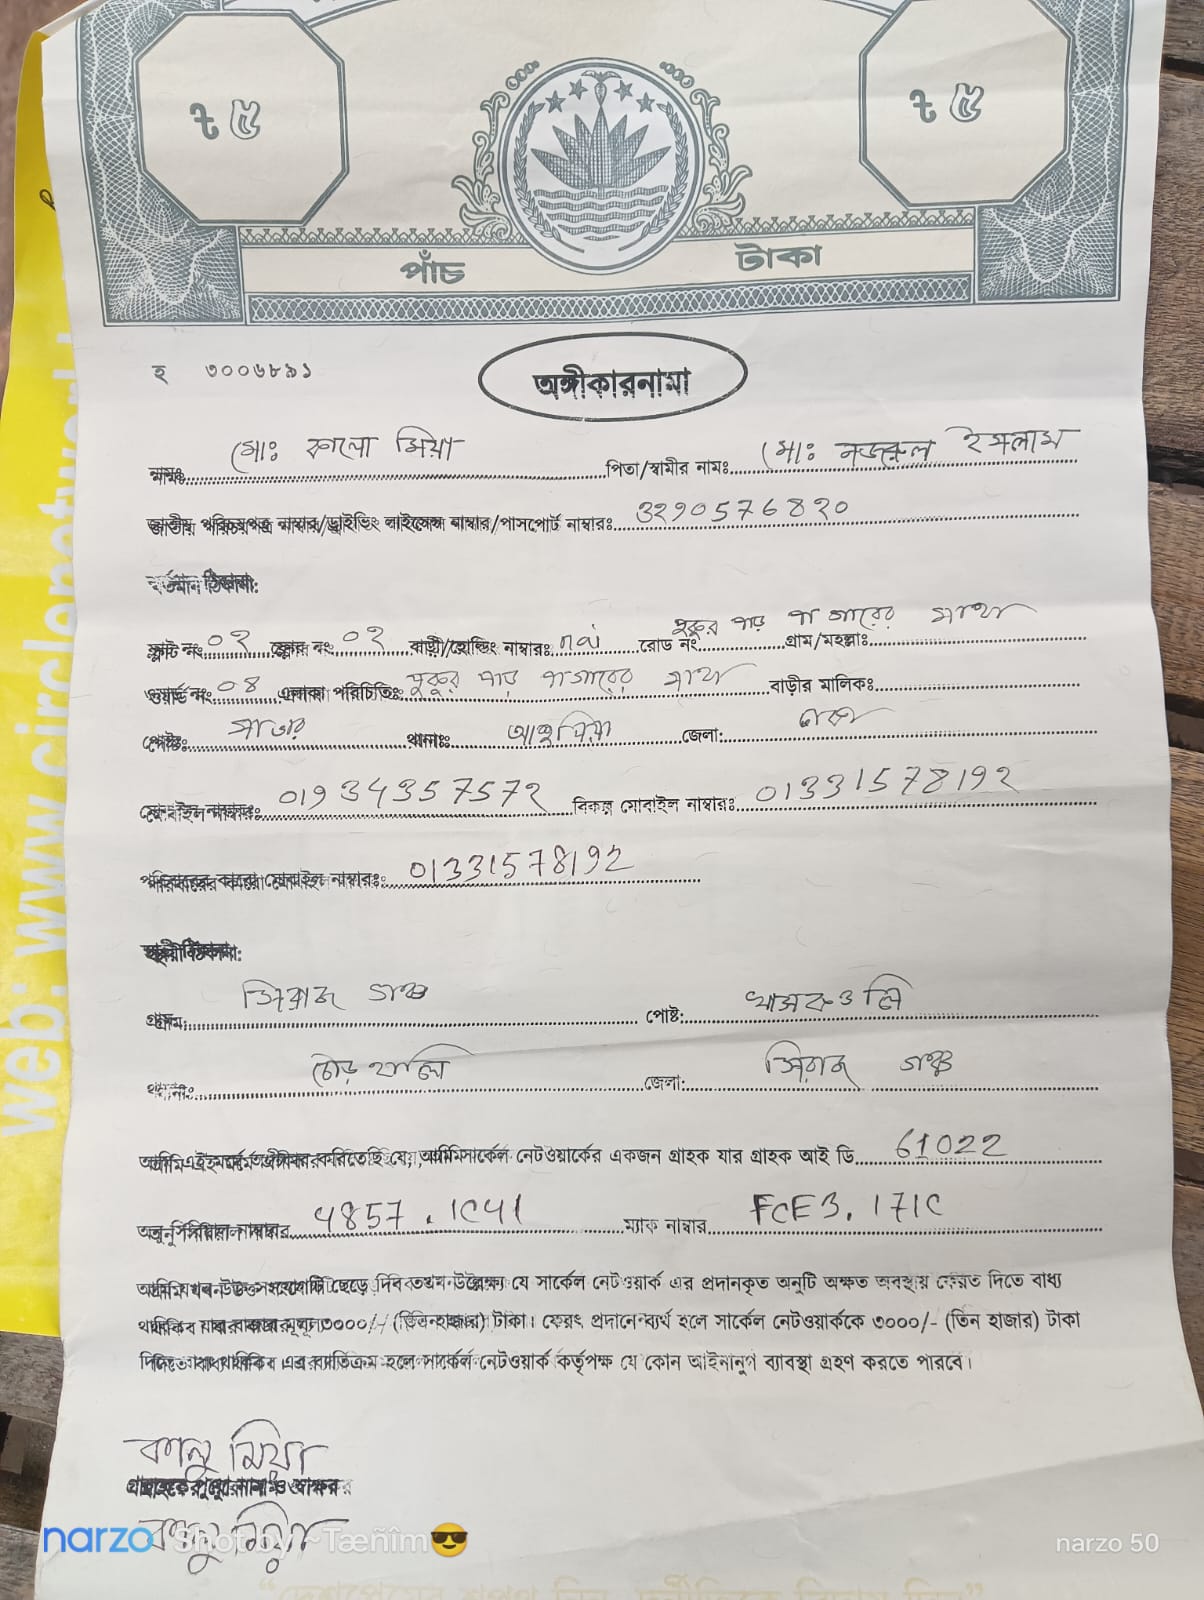 ৳ ৫ ৳ ৫
পাঁচ টাকা
web: www.circlenetwork
হ ৩০০৬৮৯১
অঙ্গীকারনামা
নামঃ মোঃ কালো মিয়া পিতা/স্বামীর নামঃ মোঃ নজরুল ইসলাম
জাতীয় পরিচয়পত্র নাম্বার/ড্রাইভিং লাইসেন্স নাম্বার/পাসপোর্ট নাম্বারঃ 3290576820
বর্তমান ঠিকানা:
ফ্লাট নং ০২ ফ্লোর নং ০২ বাড়ী/হোল্ডিং নাম্বারঃ নাই রোড নং পুকুর পাড় গ্রাম/মহল্লাঃ
ওয়ার্ড নং ০৪ এলাকা পরিচিতিঃ পুকুর পাড় বাড়ীর মালিকঃ
পোষ্টঃ সাভার থানাঃ আশুলিয়া জেলা: ঢাকা
মোবাইল নাম্বারঃ 01934357572 বিকল্প মোবাইল নাম্বারঃ 01331578192
পরিবারের কারো মোবাইল নাম্বারঃ 01331578192
স্থায়ী ঠিকানা:
গ্রাম: সিরাজ গঞ্জ পোষ্ট:
থানাঃ জেলা: সিরাজ গঞ্জ
আমি এই মর্মে অঙ্গীকার করিতেছি যে, আমি সার্কেল নেটওয়ার্কের একজন গ্রাহক যার গ্রাহক আই ডি 61022
অনু সিরিয়াল নাম্বার 4857.1C41 ম্যাক নাম্বার FCE3.171C
আমি যখন উক্ত সংযোগটি ছেড়ে দিব তখন উল্লেক্ষ্য যে সার্কেল নেটওয়ার্ক এর প্রদানকৃত অনুটি অক্ষত অবস্থায় ফেরত দিতে বাধ্য
থাকিব যার বাজার মূল্য ৩০০০/- (তিন হাজার) টাকা। ফেরৎ প্রদানে ব্যর্থ হলে সার্কেল নেটওয়ার্ককে ৩০০০/- (তিন হাজার) টাকা
দিতে বাধ্য থাকিব এর ব্যতিক্রম হলে সার্কেল নেটওয়ার্ক কর্তৃপক্ষ যে কোন আইনানুগ ব্যবস্থা গ্রহণ করতে পারবে।
কালু মিয়া
গ্রাহকের পুরো নাম ও স্বাক্ষর
কালু মিয়া
narzo Shot by ~ Tæñîm😎 narzo 50
"দেশপ্রেমের শপথ নিন, দুর্নীতিকে বিদায় দিন"